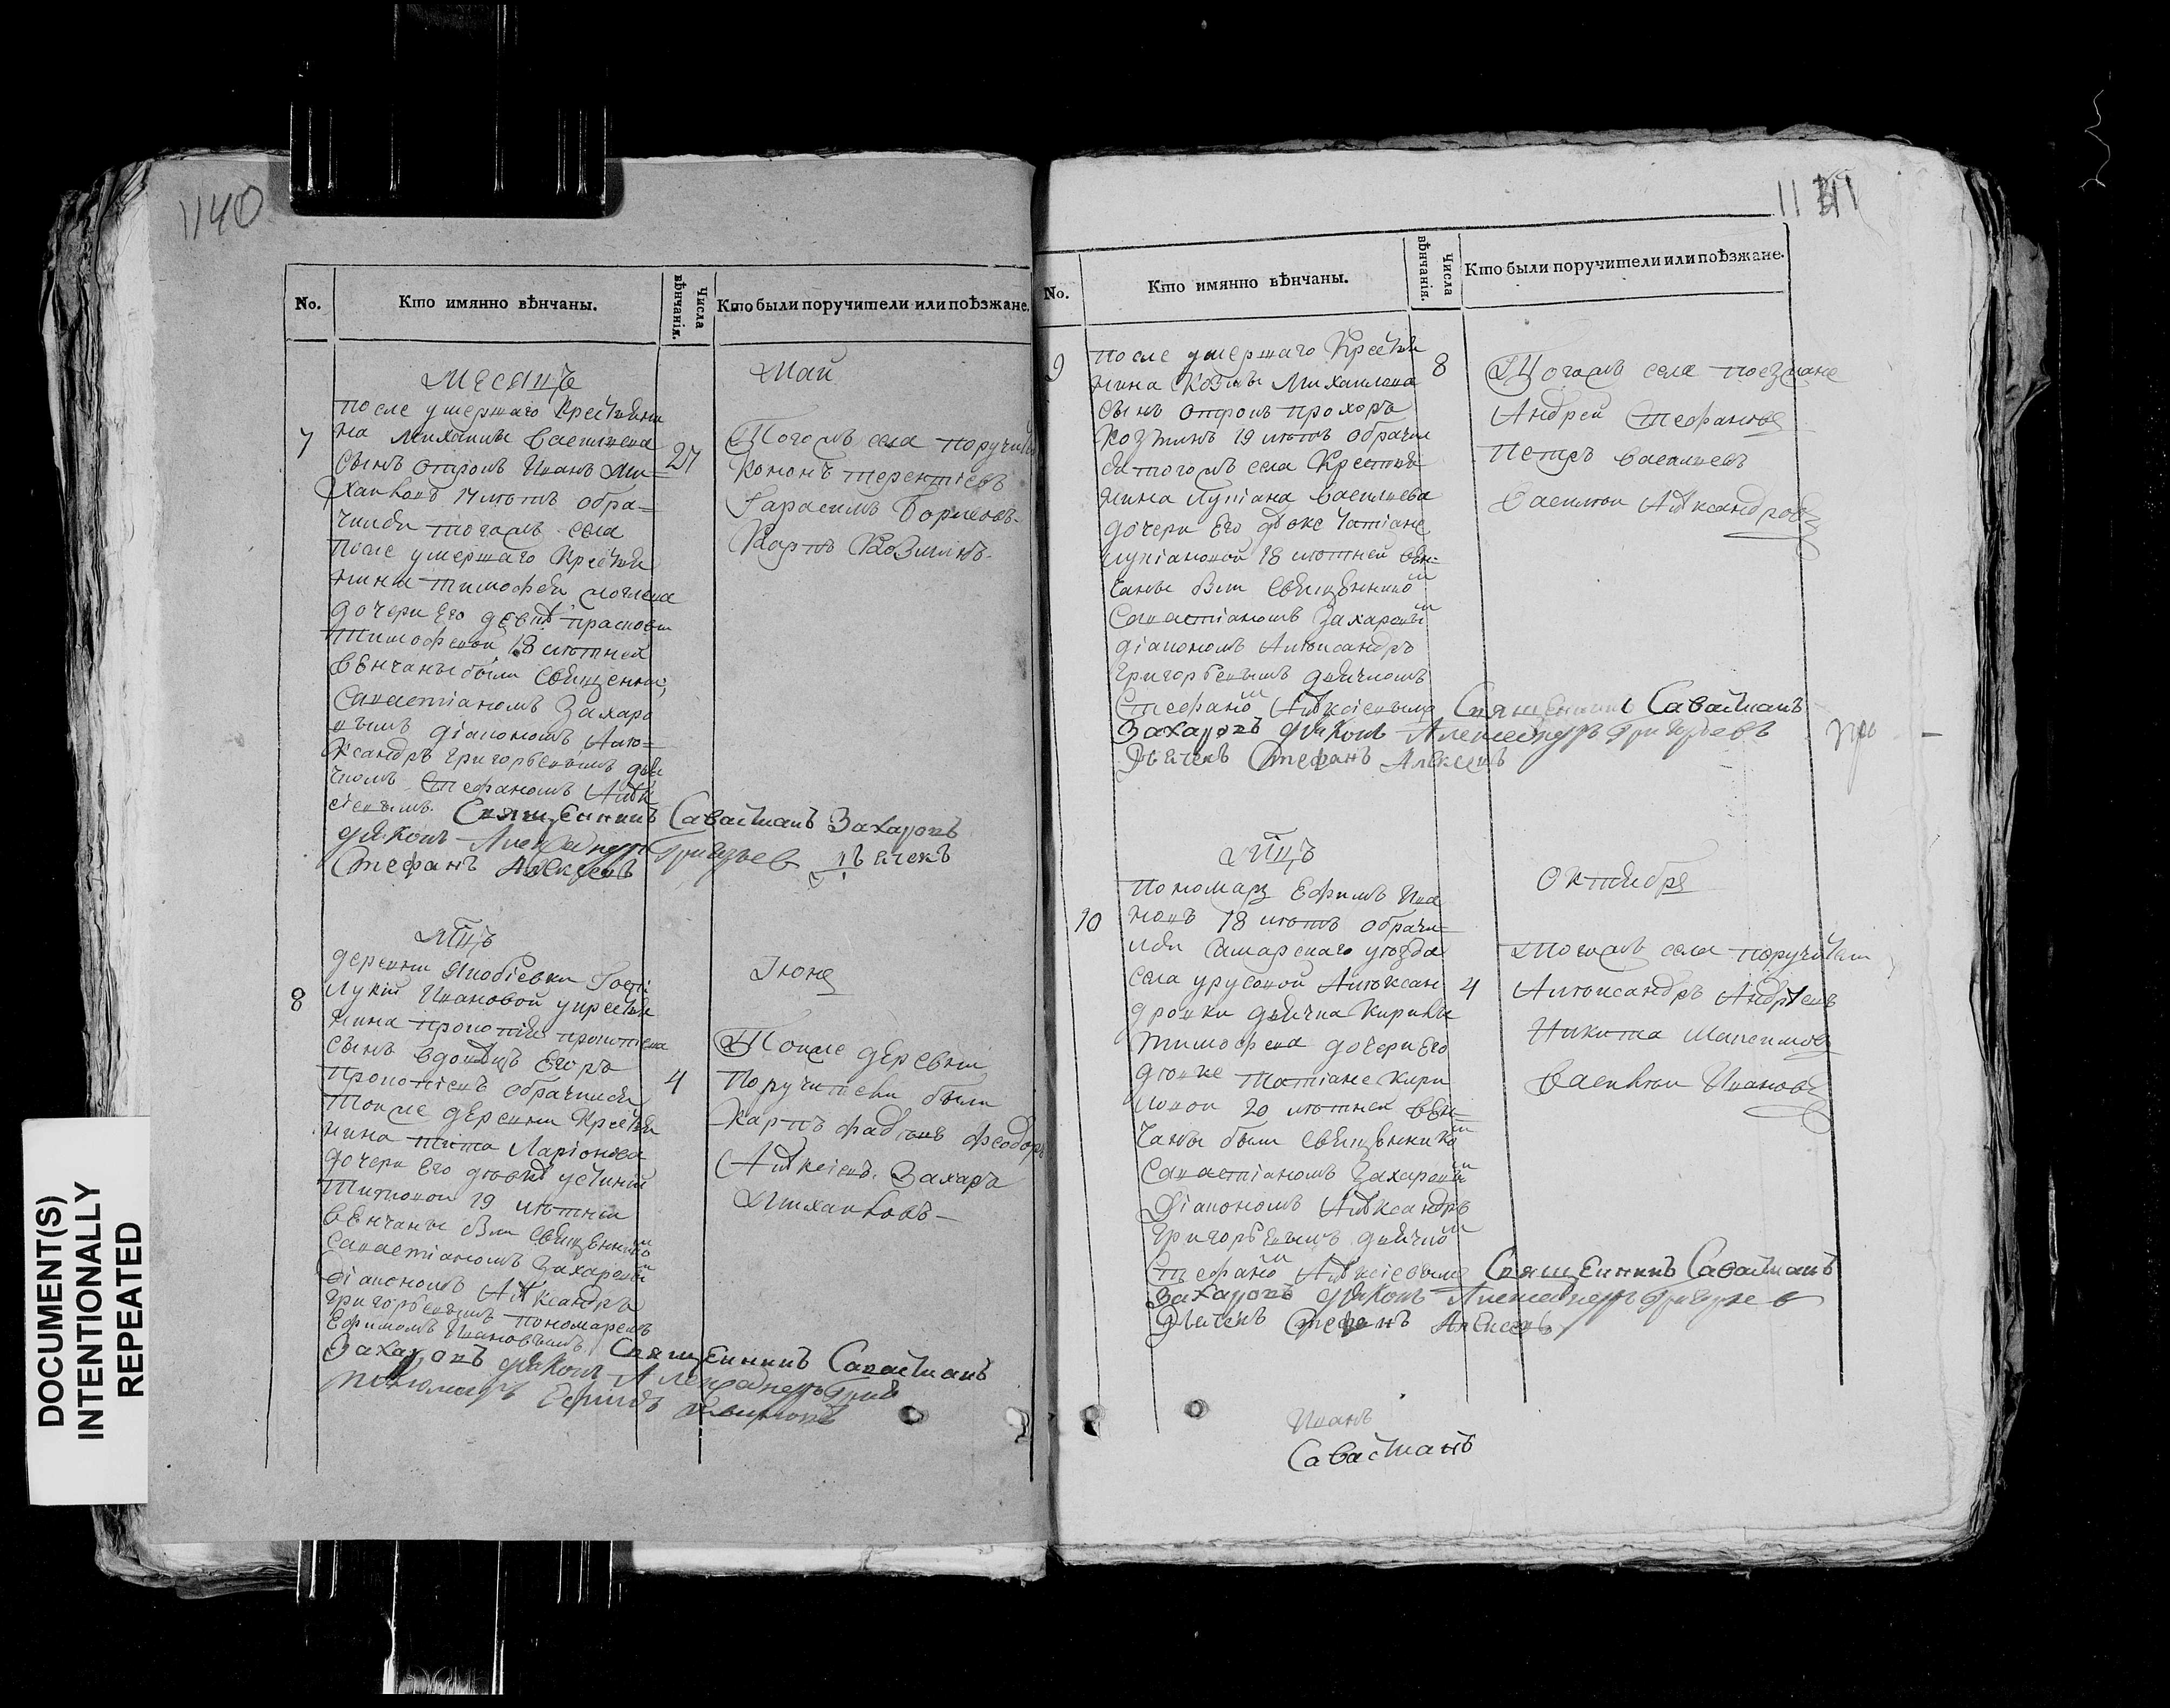 DOCUMENT(S)
INTENTIONALLY
REPEATED
1140
No.
Кто имянно вѣнчаны.
Числа вѣнчанія.
Кто были поручители или поѣзжане.
Месяцъ
Май
7
после умершаго Крестьяни
на Михаилы Васильева
сынъ отрокъ Иванъ Ми=
хаиловъ 17 летъ обра=
чилси тогожъ села
после умершаго Крестья
нина Тимофея
дочери его девке Прасковьи
Тимофевой 18 летней
венчаны были священни
Савастіаномъ Захаро
вымъ діакономъ Але=
ксандръ Григорьевымъ дьи
чкомъ Стефаномъ Алек
сіевымъ. Священникъ Савастианъ Захаровъ
дьяконъ Александръ Григорьев дьячекъ
Стефанъ Алексеевъ
27
Тогожъ села поручите
Кононъ Терентіевъ
Гарасимъ Борисовъ
Карпъ Козминъ
Мцъ
Іюня
8
деревни
Лукіи Ивановой крестья
нина Прокопія Прокопіева
сынъ вдовецъ Егоръ
Прокопіевъ обрачилси
тоиже деревни Крестья
нина Тита Ларіонова
дочери его девке Устиніи
Титовой 19 летней
венчаны были священнико
Савастіаномъ Захаровы
діакономъ Александръ
Григорьевымъ пономаремъ
Ефимомъ Ивановымъ. Священникъ Савастианъ
Захаровъ дьяконъ Александръ Григ
пономарь Ефимъ
4
Тоиже деревни
поручители были
Карпъ Феодоръ
Алексіевъ. Захаръ
Михаиловъ
11 41
No.
Кто имянно вѣнчаны.
Числа вѣнчанія.
Кто были поручители или поѣзжане.
9
после умершаго Крестья
нина Козмы Михаилова
сынъ отрокъ Прохоръ
Козминъ 19 летъ обрачи
си тогожъ села Крестья
нина Лукіана Васильева
дочери его девке Татіане
Лукіановой 18 летней вен=
чаны были священнико
Савастіаномъ Захаровы
діакономъ Александръ
Григорьевымъ дьячкомъ
Стефано Алексіевымъ Священникъ Савастианъ
Захаровъ дьяконъ Александръ Григорьевъ
Дьячекъ Стефанъ Алексеевъ
8
Тогожъ села поезжане
Андрей Стефановъ
Петръ Васильевъ
Василей Александровъ
Мцъ
Октября
10
пономарь Ефимъ Ива
новъ 18 летъ обрачи=
лси Самарскаго уезда
села Урусовой Алексан
дровки дьячка Кирила
Тимофева дочери его
девке Татіане Кири
ловой 20 летней вен=
чаны были священнико
Савастіаномъ Захаровы
Діакономъ Александръ
Григорьевымъ дьячко
Стефано Алексіевымъ Священникъ Савастианъ
Захаровъ дьяконъ Александръ Григорьев
Дьячекъ Стефанъ Алексеевъ
4
Тогожъ села поручители
Александръ Андреевъ
Никита Максимовъ
Василей Ивановъ
Иванъ
Савастианъ